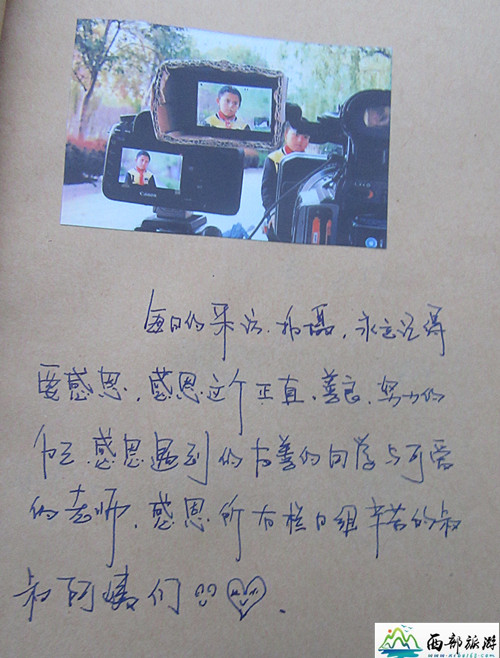 Canon
每日的采访、拍摄,永远记得
要感恩,感恩这个正直、善良、努力的
感恩遇到的友善的同学与可爱
的老师,感恩所有栏目组辛苦的叔
叔阿姨们
西部旅游